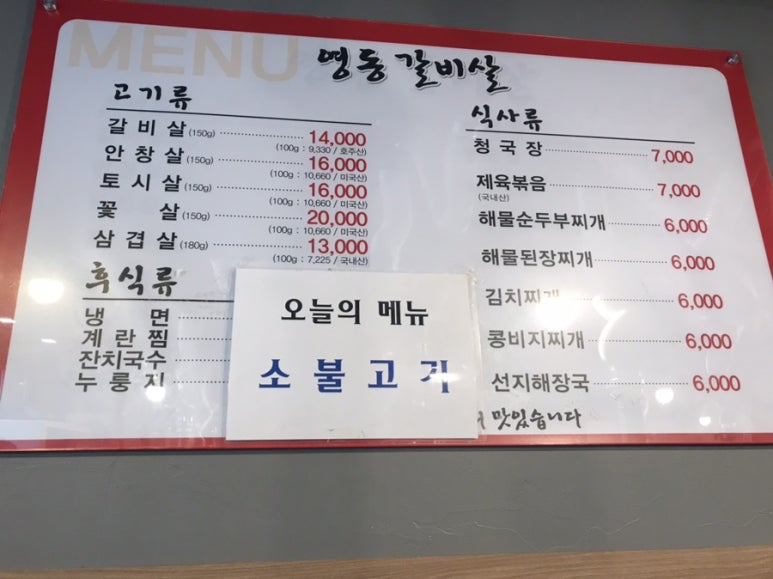 MENU
영동 갈비살
고기류
갈비살(150g) 14,000
(100g : 9,330 / 호주산)
안창살(150g) 16,000
(100g : 10,660 / 미국산)
토시살(150g) 16,000
(100g : 10,660 / 미국산)
꽃 살(150g) 20,000
(100g : 10,660 / 미국산)
삼겹살(180g) 13,000
(100g : 7,225 / 국내산)
후식류
냉 면
계란찜
잔치국수
누룽지
오늘의 메뉴
소불고기
식사류
청국장 7,000
제육볶음 7,000
(국내산)
해물순두부찌개 6,000
해물된장찌개 6,000
김치찌개 6,000
콩비지찌개 6,000
선지해장국 6,000
맛있습니다